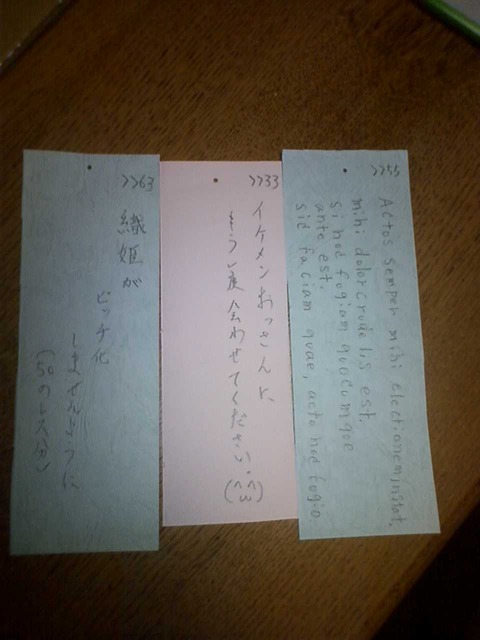 >>55
Actos semper mihi electionem instat.
mihi dolor crudelis est.
si hod fugiam quocumque
ante est.
sic faciam quae, acto hod fugio.
>>33
イケメンおっさんに
もう一度会わせてください。
(^ω^)
>>63
織姫が
ビッチ化
しませんように
(50のレス分)